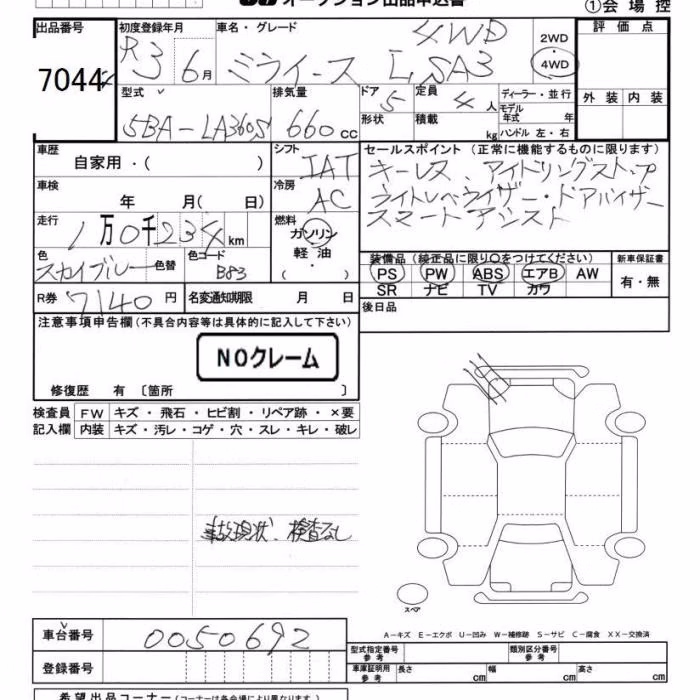 オークション出品申込書
①会場控
出品番号 初度登録年月 車名・グレード 評価点
7044 R3 6月 ミライース L SA3 4WD 2WD 4WD
型式 排気量 ドア 定員 ディーラー・並行 外装 内装
5BA-LA360S 660cc 5 4人 モデル年式 年
形状 積載 kg ハンドル 左・右
車歴 シフト セールスポイント (正常に機能するものに限ります)
自家用・( ) IAT キーレス、アイドリングストップ
車検 冷房 ライトレベライザー・ドアバイザー
年 月( 日) AC スマートアシスト
走行 燃料
1万0千234km ガソリン
色 色替 色コード 軽油 装備品 (純正品に限り〇をつけてください) 新車保証書
スカイブルー B83 ( ・ ) PS PW ABS エアB AW 有・無
R券 7140円 名変通知期限 月 日 SR ナビ TV カワ
後日品
注意事項申告欄(不具合内容等は具体的に記入して下さい)
NOクレーム
修復歴 有 〔箇所 〕
検査員 FW キズ・飛石・ヒビ割・リペア跡・×要
記入欄 内装 キズ・汚レ・コゲ・穴・スレ・キレ・破レ
事故現状、検査なし
スペア
A-キズ E-エクボ U-凹み W-補修跡 S-サビ C-腐食 XX-交換済
車台番号 0050692 型式指定番号 参考 類別区分番号 参考
登録番号 車庫証明用 参考 長さ cm 幅 cm 高さ cm
希望出品コーナー (コーナーは各会場により異なります。)